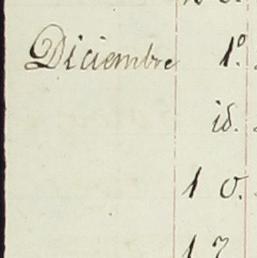 Diciembre 1º.
id.
10.
17